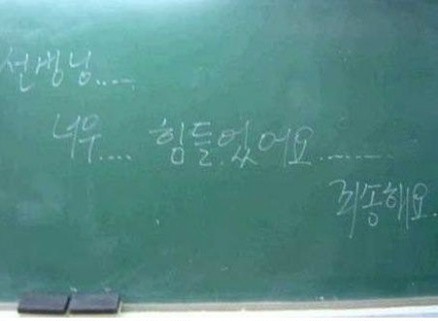 선생님....
너무.... 힘들었어요.......
죄송해요.